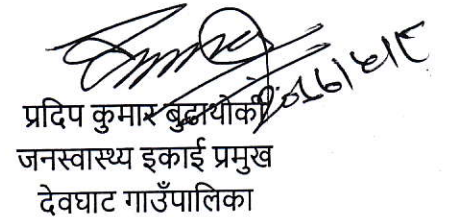 प्रदिप कुमार बुढाथोकी
जनस्वास्थ्य इकाई प्रमुख
देवघाट गाउँपालिका